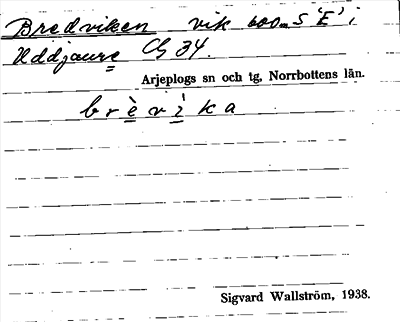 Bredviken vik 600 m S 'E' i
Uddjaure Cg 34.
Arjeplogs sn och tg, Norrbottens län.
brèvìka
Sigvard Wallström, 1938.